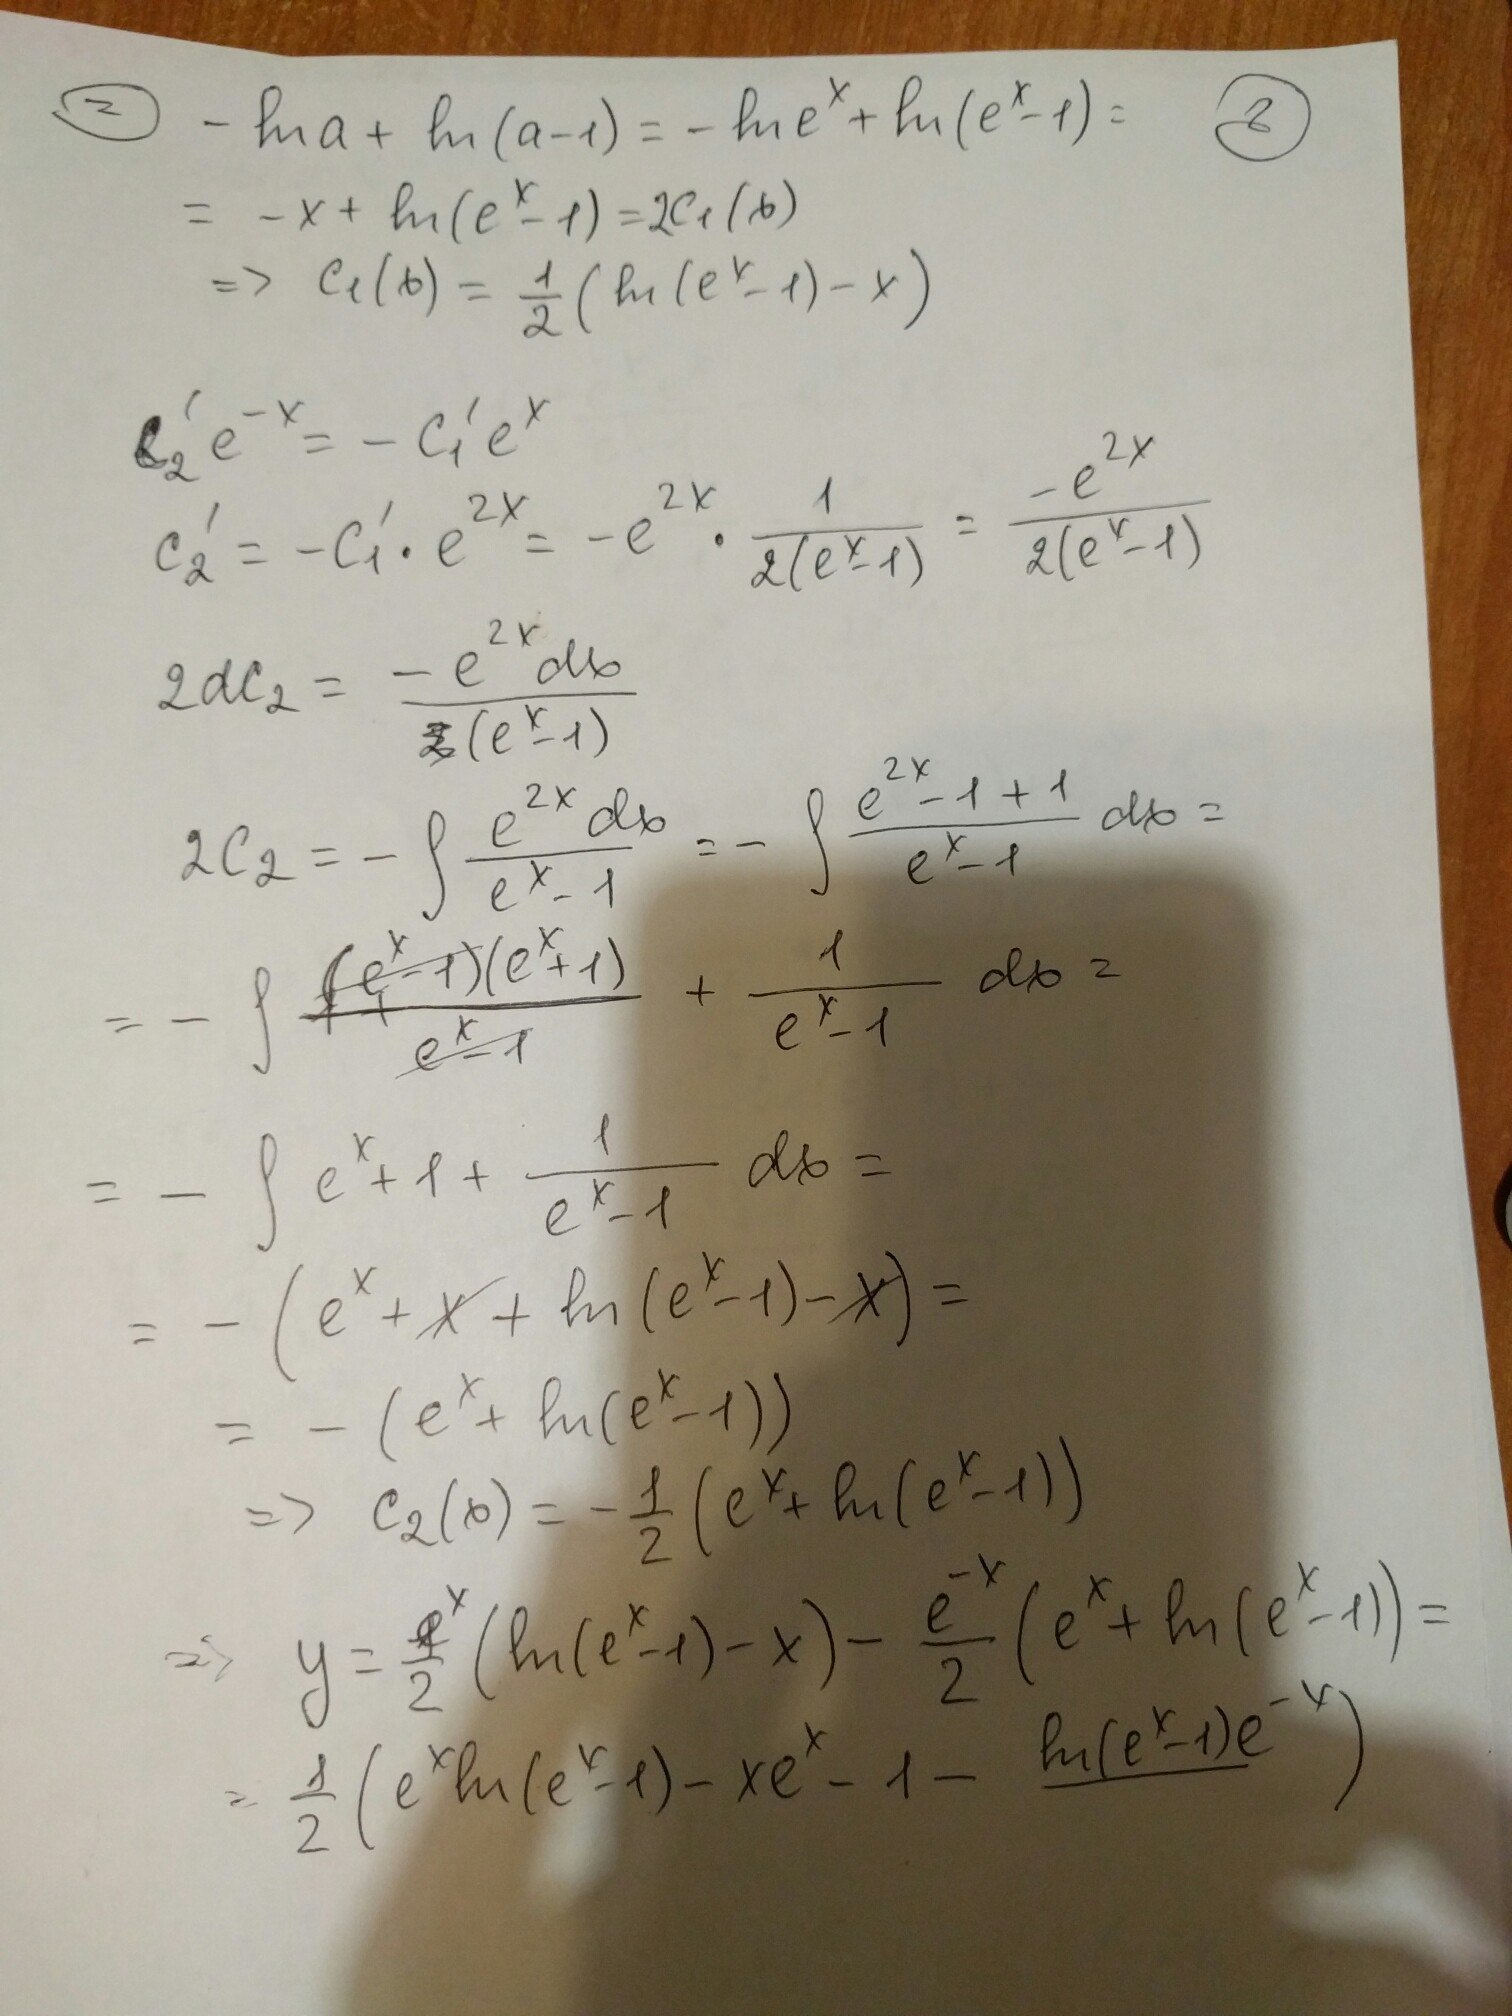 ② - ln a + ln(a-1) = - ln e^x + ln(e^x-1) = ⑧
= -x + ln(e^x-1) = 2C₁(x)
=> C₁(x) = 1/2 (ln(e^x-1) - x)
C₂' e^{-x} = - C₁' e^x
C₂' = -C₁' · e^{2x} = -e^{2x} · 1/(2(e^x-1)) = -e^{2x}/(2(e^x-1))
2dC₂ = -e^{2x}dx/(e^x-1)
2C₂ = - ∫ e^{2x}dx/(e^x-1) = - ∫ (e^{2x}-1+1)/(e^x-1) dx =
= - ∫ (e^x-1)(e^x+1)/(e^x-1) + 1/(e^x-1) dx =
= - ∫ e^x + 1 + 1/(e^x-1) dx =
= - (e^x + x + ln(e^x-1) - x) =
= - (e^x + ln(e^x-1))
=> C₂(x) = -1/2 (e^x + ln(e^x-1))
=> y = e^x/2 (ln(e^x-1) - x) - e^{-x}/2 (e^x + ln(e^x-1)) =
= 1/2 (e^x ln(e^x-1) - xe^x - 1 - ln(e^x-1)e^{-x})